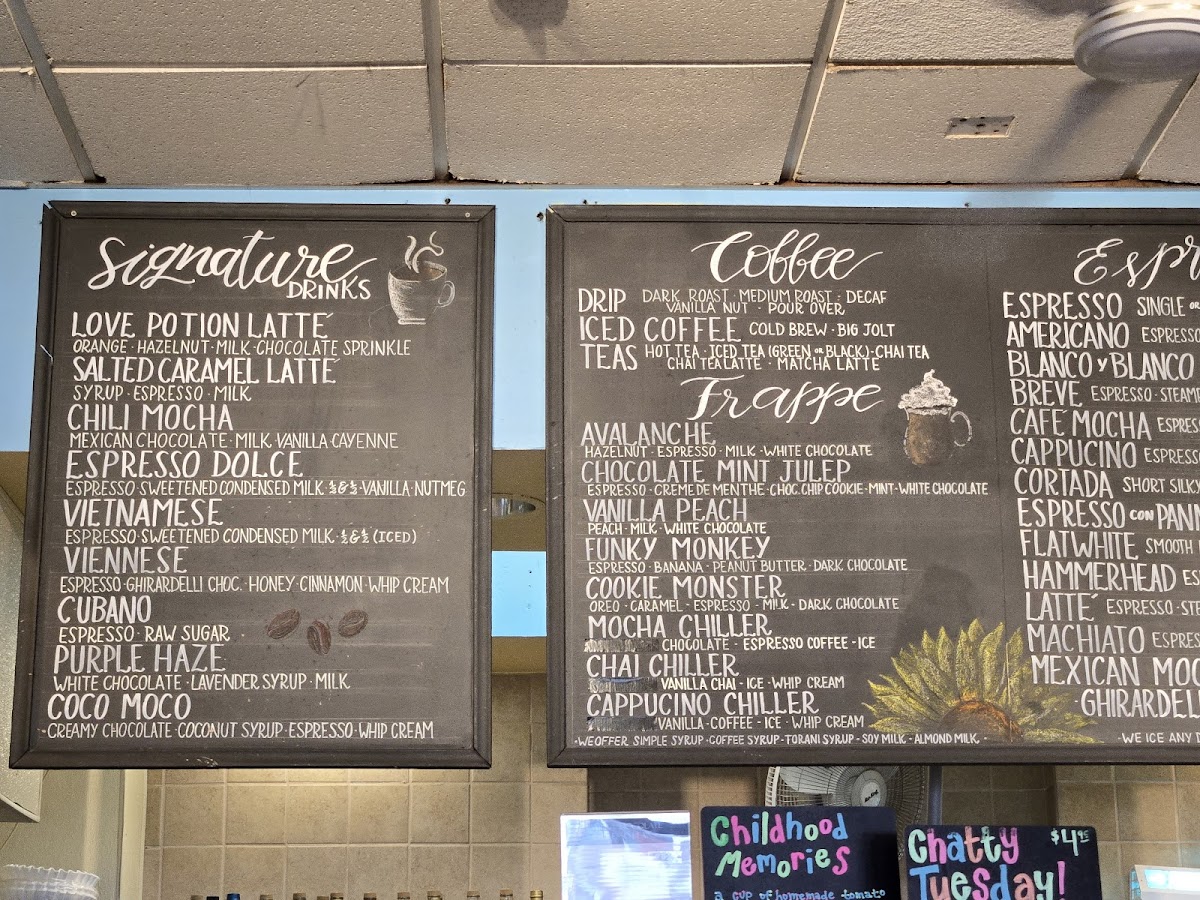 Signature
DRINKS
LOVE POTION LATTÉ
ORANGE · HAZELNUT · MILK · CHOCOLATE SPRINKLE
SALTED CARAMEL LATTÉ
SYRUP · ESPRESSO · MILK
CHILI MOCHA
MEXICAN CHOCOLATE · MILK · VANILLA · CAYENNE
ESPRESSO DOLCE
ESPRESSO · SWEETENED CONDENSED MILK · ½&½ · VANILLA · NUTMEG
VIETNAMESE
ESPRESSO · SWEETENED CONDENSED MILK · ½&½ (ICED)
VIENNESE
ESPRESSO · GHIRARDELLI CHOC. · HONEY · CINNAMON · WHIP CREAM
CUBANO
ESPRESSO · RAW SUGAR
PURPLE HAZE
WHITE CHOCOLATE · LAVENDER SYRUP · MILK
COCO MOCO
· CREAMY CHOCOLATE · COCONUT SYRUP · ESPRESSO · WHIP CREAM
Coffee
DRIP DARK ROAST · MEDIUM ROAST · DECAF
VANILLA NUT · POUR OVER
ICED COFFEE COLD BREW · BIG JOLT
TEAS HOT TEA · ICED TEA (GREEN OR BLACK) · CHAI TEA
CHAI TEA LATTE · MATCHA LATTE
Frappe
AVALANCHE
HAZELNUT · ESPRESSO · MILK · WHITE CHOCOLATE
CHOCOLATE MINT JULEP
ESPRESSO · CREME DE MENTHE · CHOC. CHIP COOKIE · MINT · WHITE CHOCOLATE
VANILLA PEACH
PEACH · MILK · WHITE CHOCOLATE
FUNKY MONKEY
ESPRESSO · BANANA · PEANUT BUTTER · DARK CHOCOLATE
COOKIE MONSTER
OREO · CARAMEL · ESPRESSO · MILK · DARK CHOCOLATE
MOCHA CHILLER
CHOCOLATE · ESPRESSO COFFEE · ICE
CHAI CHILLER
VANILLA CHAI · ICE · WHIP CREAM
CAPPUCINO CHILLER
VANILLA · COFFEE · ICE · WHIP CREAM
· WE OFFER SIMPLE SYRUP · COFFEE SYRUP · TORANI SYRUP · SOY MILK · ALMOND MILK ·
Espr
ESPRESSO SINGLE OR
AMERICANO ESPRESSO
BLANCO Y BLANCO
BREVE ESPRESSO · STEAM
CAFÉ MOCHA ESPRES
CAPPUCINO ESPRESSO
CORTADA SHORT SILKY
ESPRESSO CON PAN
FLAT WHITE SMOOTH
HAMMERHEAD ES
LATTÉ ESPRESSO · STE
MACHIATO ESPRES
MEXICAN MOC
· GHIRARDELL
· WE ICE ANY D
Childhood
Memories
a cup of homemade tomato
Chatty $4.95
Tuesday!